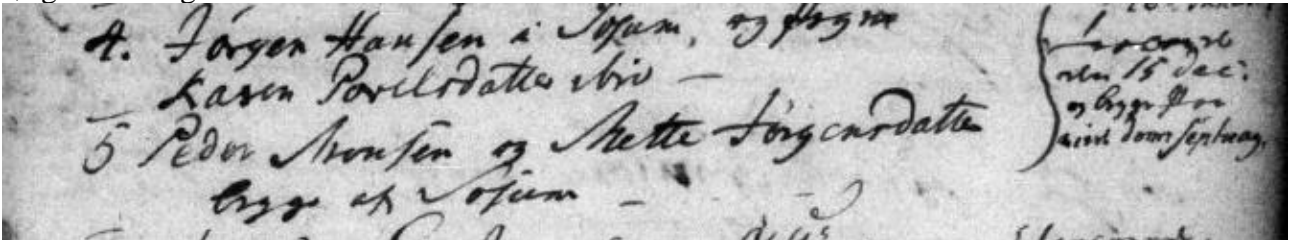 4. Jørgen Hansen i Sosum, og Pigen
Karen Povelsdatter ibid —
5 Peder Monsen og Mette Jørgensdatter
begge af Sosum —
den 15 Dec:
og begge
Dom Septuag.